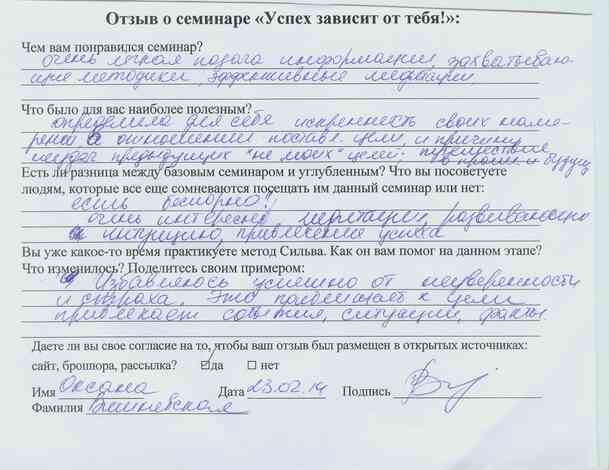 Отзыв о семинаре «Успех зависит от тебя!»:
Чем вам понравился семинар?
очень легкая подача информации, захватываю-
щие методики, эффективные медитации
Что было для вас наиболее полезным?
определила для себя искренность своих наме-
рений в отношении поставл. цели, и причину
предыдущих "не моих" целей; путешествие
в прошл. и будущ
Есть ли разница между базовым семинаром и углубленным? Что вы посоветуете
людям, которые все еще сомневаются посещать им данный семинар или нет:
есть бесспорно!
очень интересно, медитации, развиваешь
интуицию, привлечения успеха
Вы уже какое-то время практикуете метод Сильва. Как он вам помог на данном этапе?
Что изменилось? Поделитесь своим примером:
Избавляюсь успешно от неуверенности
и страха. Это приближает к цели
привлекает события, ситуации, факты.
Даете ли вы свое согласие на то, чтобы ваш отзыв был размещен в открытых источниках:
сайт, брошюра, рассылка? да нет
Имя Оксана Дата 23.02.14 Подпись
Фамилия Вишневская